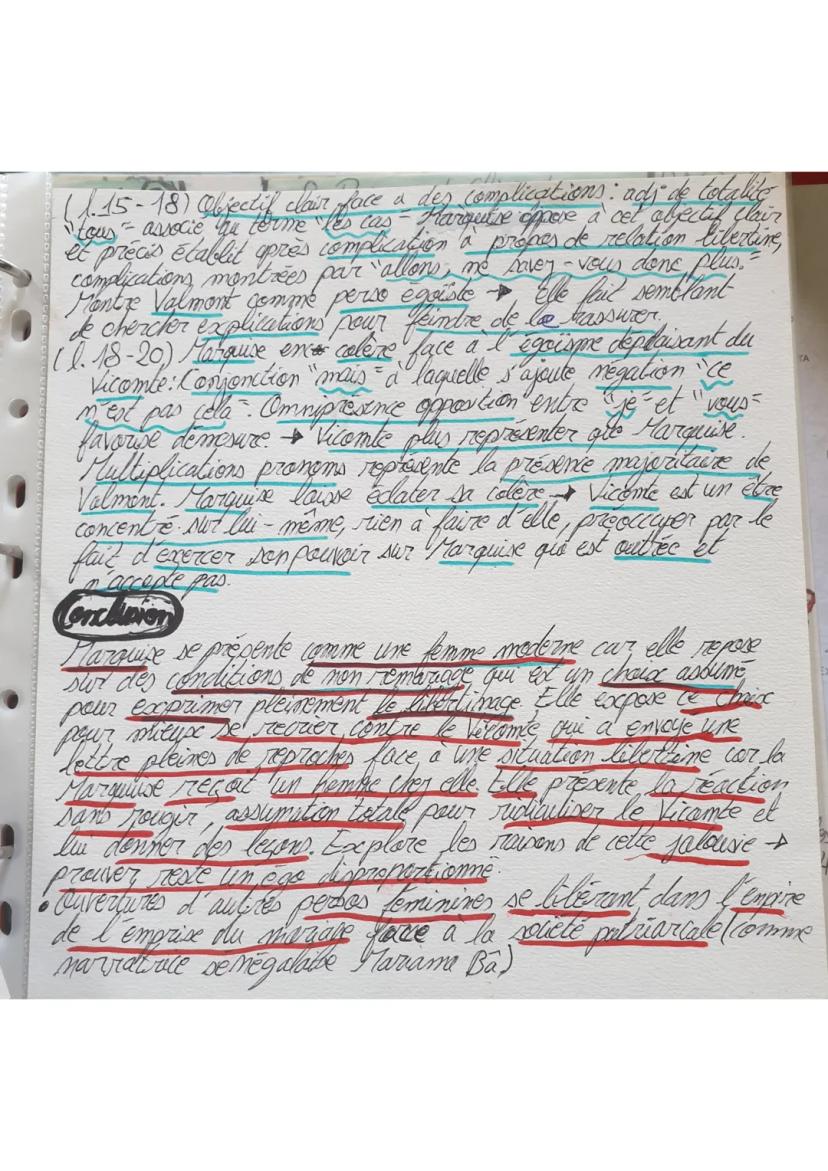 (l.15-18) Objectif clair face a des complications : adj de totalité
"tous" associé au terme "les cas" = Marquise oppose à cet objectif clair
et précis établit après complication à propos de relation libertine,
complications montrées par "allons, ne savez-vous donc plus."
Montre Valmont comme perso égoïste → Elle fait semblant
de chercher explications pour feindre de le rassurer.
(l.18-20) Marquise en colère face à l'égoïsme déplaisant du
Vicomte : Conjonction "mais" à laquelle s'ajoute négation "ce
n'est pas cela". Omniprésence opposition entre "je" et "vous"
favorise démesure → Vicomte plus représenter que Marquise.
Multiplications pronoms représente la présence majoritaire de
Valmont. Marquise laisse éclater sa colère → Vicomte est un être
concentré sur lui-même, rien à faire d'elle, préoccuper par le
fait d'exercer son pouvoir sur Marquise qui est outrée et
n'accepte pas.
Conclusion
Marquise se présente comme une femme moderne car elle repose
sur des conditions de non remariage qui est un choix assumé
pour exprimer pleinement le libertinage. Elle expose ce choix
pour mieux se recrier contre le Vicomte, qui a envoyé une
lettre pleines de reproches face à une situation libertine car la
Marquise reçoit un homme cher elle. Elle présente la réaction
sans rougir, assumation totale pour ridiculiser le Vicomte et
lui donner des leçons. Explore les raisons de cette jalousie →
prouver reste un égo disproportionné.
• Ouvertures d'autres persos féminines se libérant dans l'empire
de l'emprise du mariage face à la société patriarcale (comme
narratrice sénégalaise Mariama Bâ)